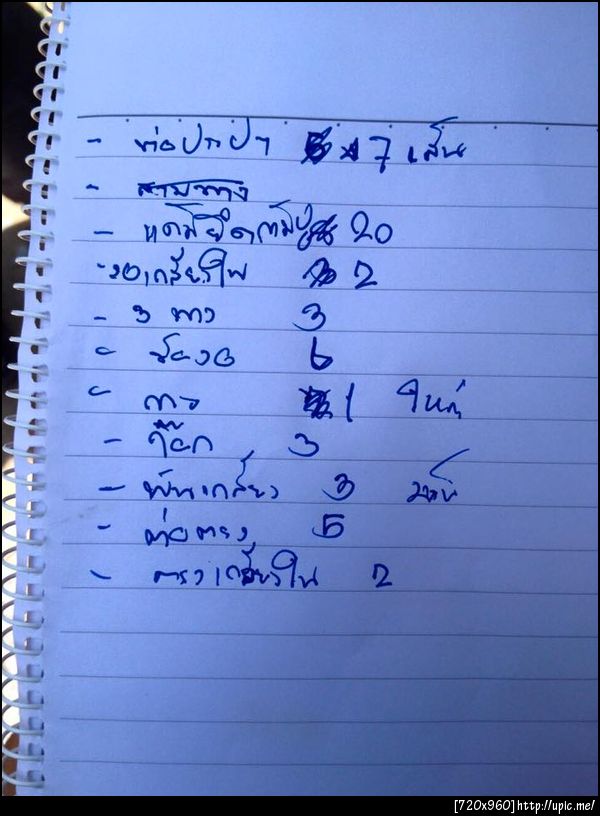 - ท่อปะปา 7 เส้น
- สามทาง
- 20
- งอเกลียวใน 2
- 3 ทาง 3
- ข้องอ 6
- กาว 1 ใหญ่
- ก๊อก 3
- พันเกลียว 3 ม้วน
- ท่อตรง 5
- ตรงเกลียวใน 2
[720x960]http://upic.me/